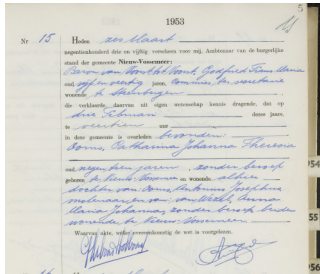 1953
Nr 15 Heden zes Maart
negentienhonderd drie en vijftig verscheen voor mij, Ambtenaar van de burgerlijke
stand der gemeente Nieuw-Vossemeer:
Baron van Voorst tot Voorst, Godfried Frans Maria
oud vijf en veertig jaren, commies ter secretarie
wonende te Steenbergen
die verklaarde, daarvan uit eigen wetenschap kennis dragende, dat op
drie Februari dezes jaars,
te veertien uur
in deze gemeente is overleden bevonden
Ooms, Catharina Johanna Theresia
oud negentien jaren, zonder beroep
geboren te Nieuw-Vossemeer en wonende alhier
dochter van Ooms, Antonius Josephus
molenaar en van van Anna
Maria Johanna, zonder beroep beiden
wonende te Nieuw-Vossemeer
Waarvan akte, welke overeenkomstig de wet is voorgelezen.
954
55
956